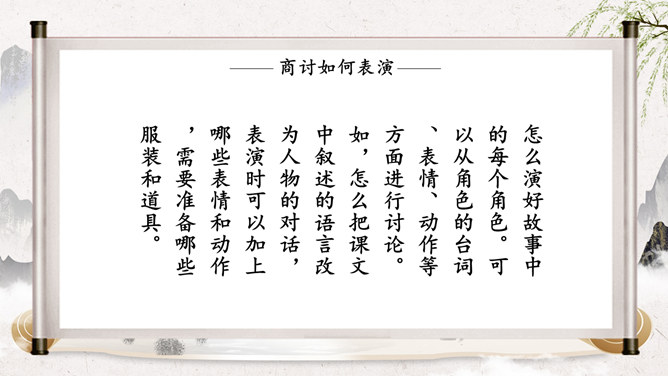 商讨如何表演
怎么演好故事中
的每个角色。可
以从角色的台词
、表情、动作等
方面进行讨论。
如，怎么把课文
中叙述的语言改
为人物的对话，
表演时可以加上
哪些表情和动作
，需要准备哪些
服装和道具。